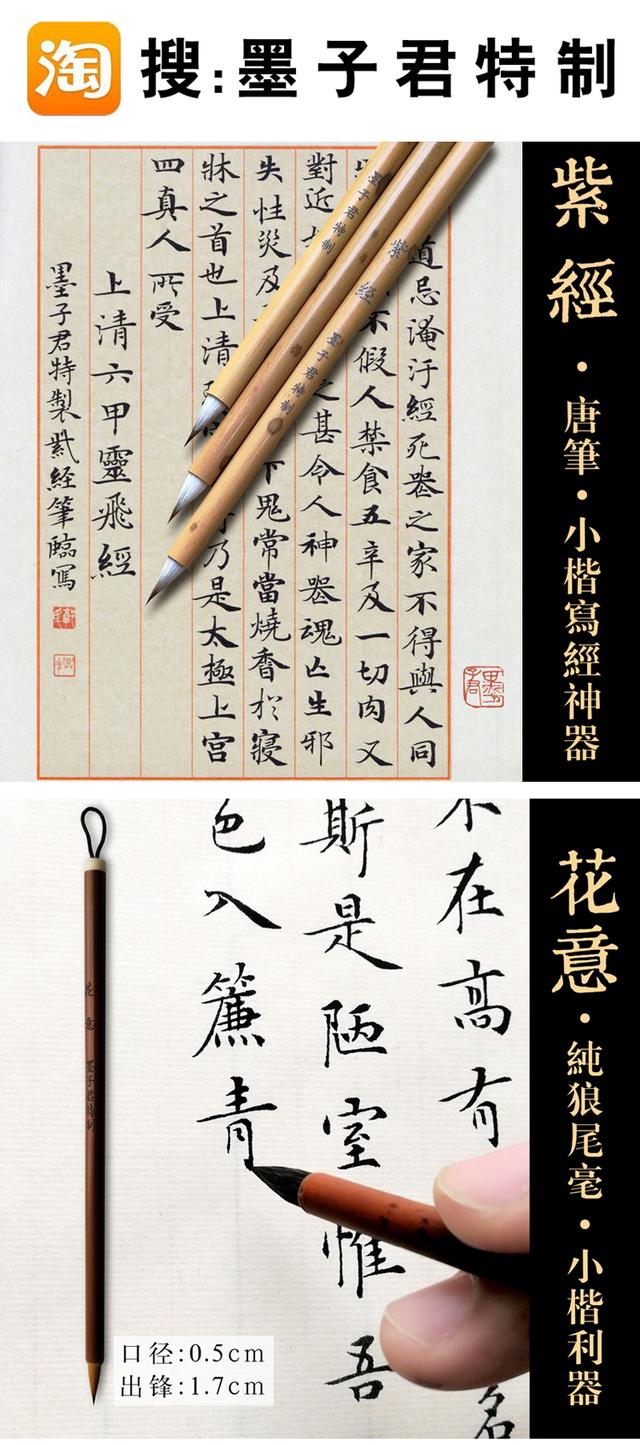 淘
搜:墨子君特制
紫經・唐筆・小楷寫經神器
道忌淹汙經死喪之家不得與人同
不假人禁食五辛及一切肉又
對近 之甚令人神喪魂亡生邪
失性災及 下鬼常當燒香於寢
牀之首也上清 乃是太極上宮
四真人所受
上清六甲靈飛經
墨子君特製紫経筆臨寫
墨子君特制
紫經 墨子君特制
花意・純狼尾毫・小楷利器
不在高有
斯是陋室惟吾
名
色入簾青
花意 墨子君特制
口径:0.5cm
出锋:1.7cm